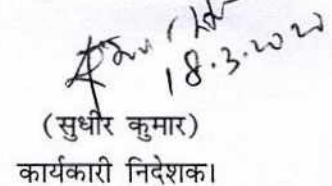 18.3.2020
(सुधीर कुमार)
कार्यकारी निदेशक।